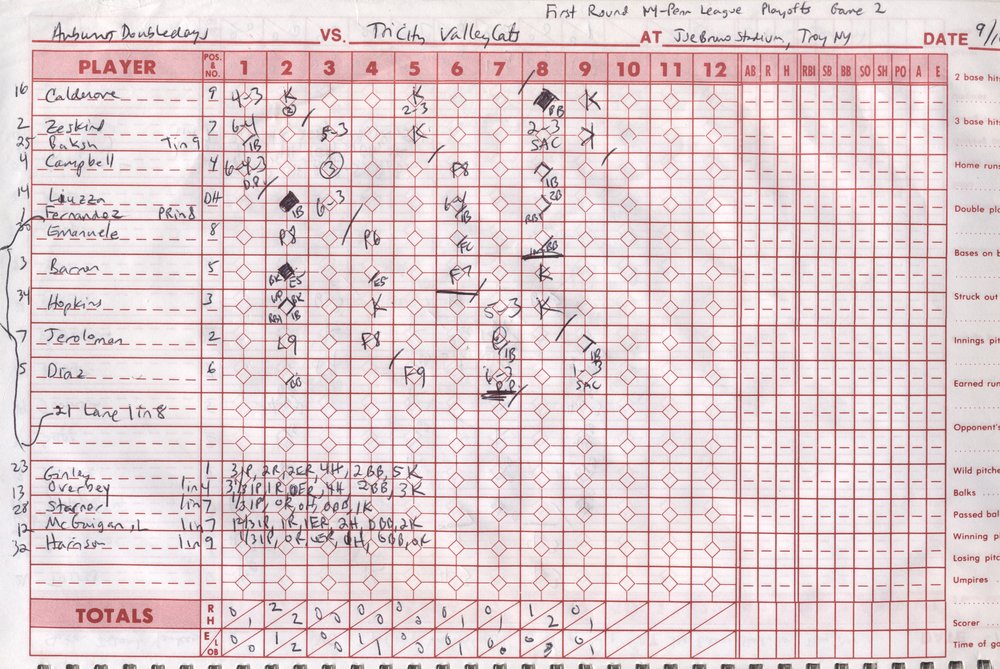 First Round NY-Penn League Playoffs Game 2
Auburn Doubledays VS. TriCity ValleyCats AT Joe Bruno Stadium, Troy NY DATE 9/1
PLAYER POS. & NO. 1 2 3 4 5 6 7 8 9 10 11 12 AB R H RBI SB BB SO SH PO A E
2 base hit
16 Calderone 9 4-3 K K 2-3 BB K
3 base hit
2 Zeskind 7 6-4 1B 5-3 K 2-3 SAC K
25 Baksh 7in9
4 Campbell 4 6-4-3 D.P. 3 F8 1B
Home runs
14 Liuzza DH 1B 6-3 6-4 1B 2B RBI
Double pla
1 Fernandez PRin8
Emanuele 8 F8 F6 FC BB
Bases on b
3 Barron 5 BK E5 E5 F7 K
Struck out
34 Hopkins 3 BK 1B RBI K 5-3 K
Innings pit
7 Jeroloman 2 K9 F8 1B 1B
5 Diaz 6 BB F9 1-3 SAC
Earned run
21 Lane 1in8
Opponent's
23 Ginley 1 3IP, 2R, 2ER, 4H, 2BB, 5K
Wild pitche
13 Overbey 1in4 3 1/3IP, 1R, 0ER, 4H, 2BB, 3K
Balks
28 Starner 1in7 1/3IP, 0R, 0H, 0BB, 1K
Passed bal
12 McGuigan, L 1in7 1 2/3IP, 1R, 1ER, 2H, 0BB, 2K
Winning p
32 Harrison 1in9 1/3IP, 0R, 0ER, 0H, 0BB, 0K
Losing pitc
Umpires
TOTALS R H 0 1 2 2 0 0 0 0 0 0 0 1 0 1 1 2 0 1
Scorer
E LOB 0 0 1 2 0 0 1 1 0 0 0 1 0 0 0 3 0 1
Time of ga